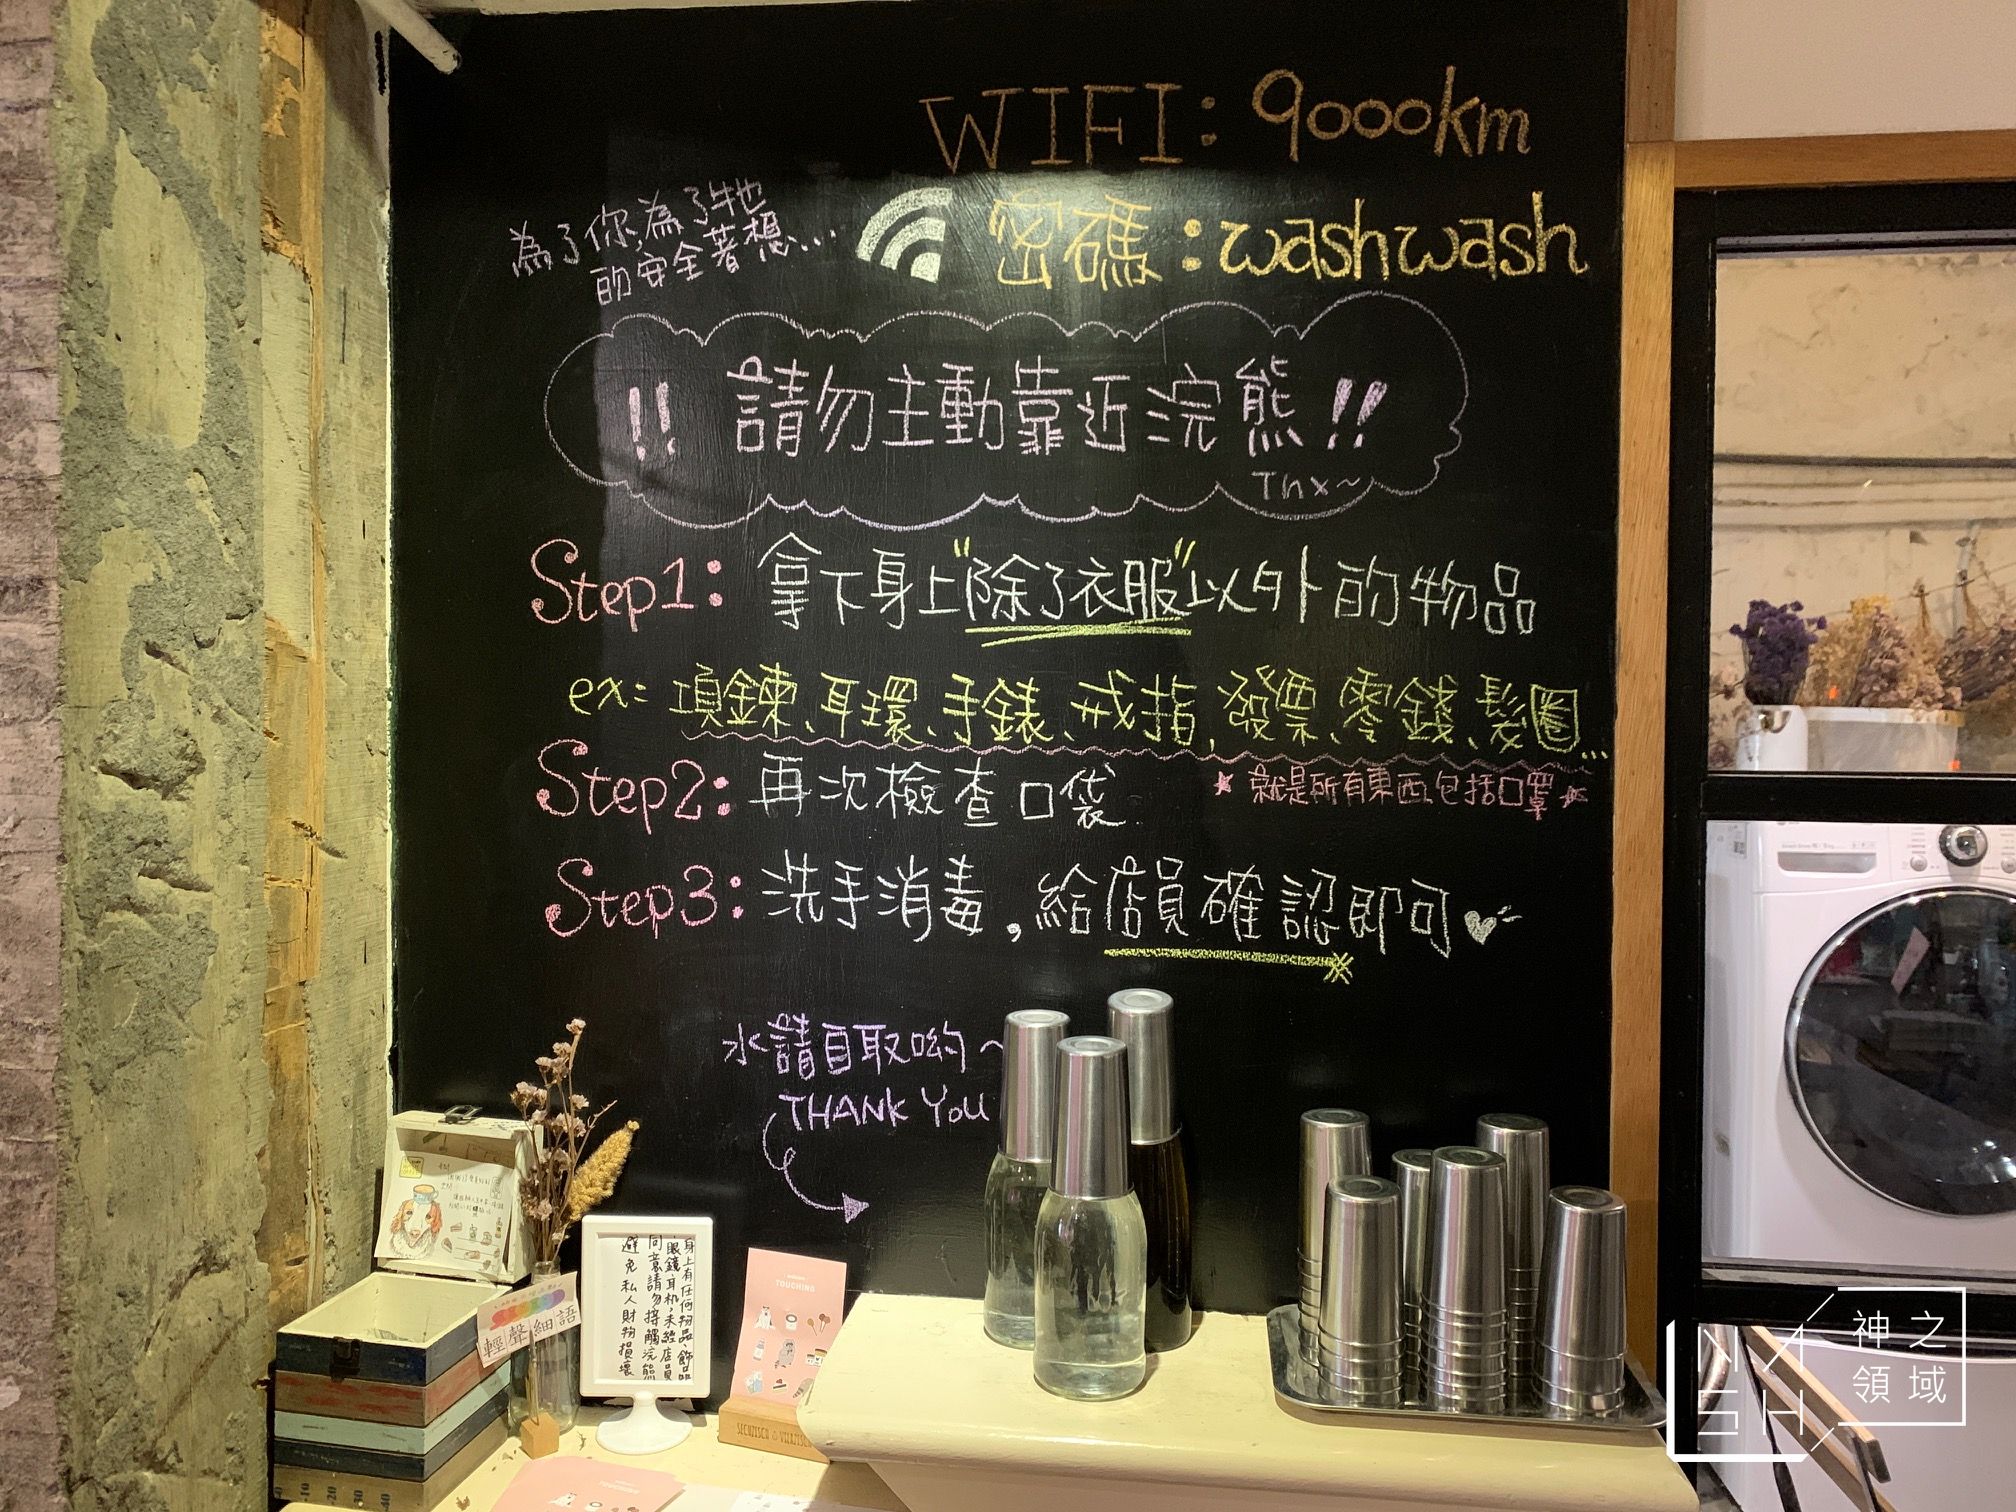 WIFI: 9000km
密碼:washwash
為了你,為了牠
的安全著想...
!! 請勿主動靠近浣熊!!
Tnx~
Step1: 拿下身上"除了衣服"以外的物品
ex: 項鍊、耳環、手錶、戒指、發票、零錢、髮圈...
*就是所有東西包括口罩*
Step2: 再次檢查口袋
Step3: 洗手消毒,給店員確認即可
水請自取喲~
THANK YOU
身上有任何物品、飾品
眼鏡、耳机,未經店員
同意請勿接觸浣熊
避免私人財物損壞
輕聲細語
TOUCHING
10
20
30
40
NASH
神之
領域